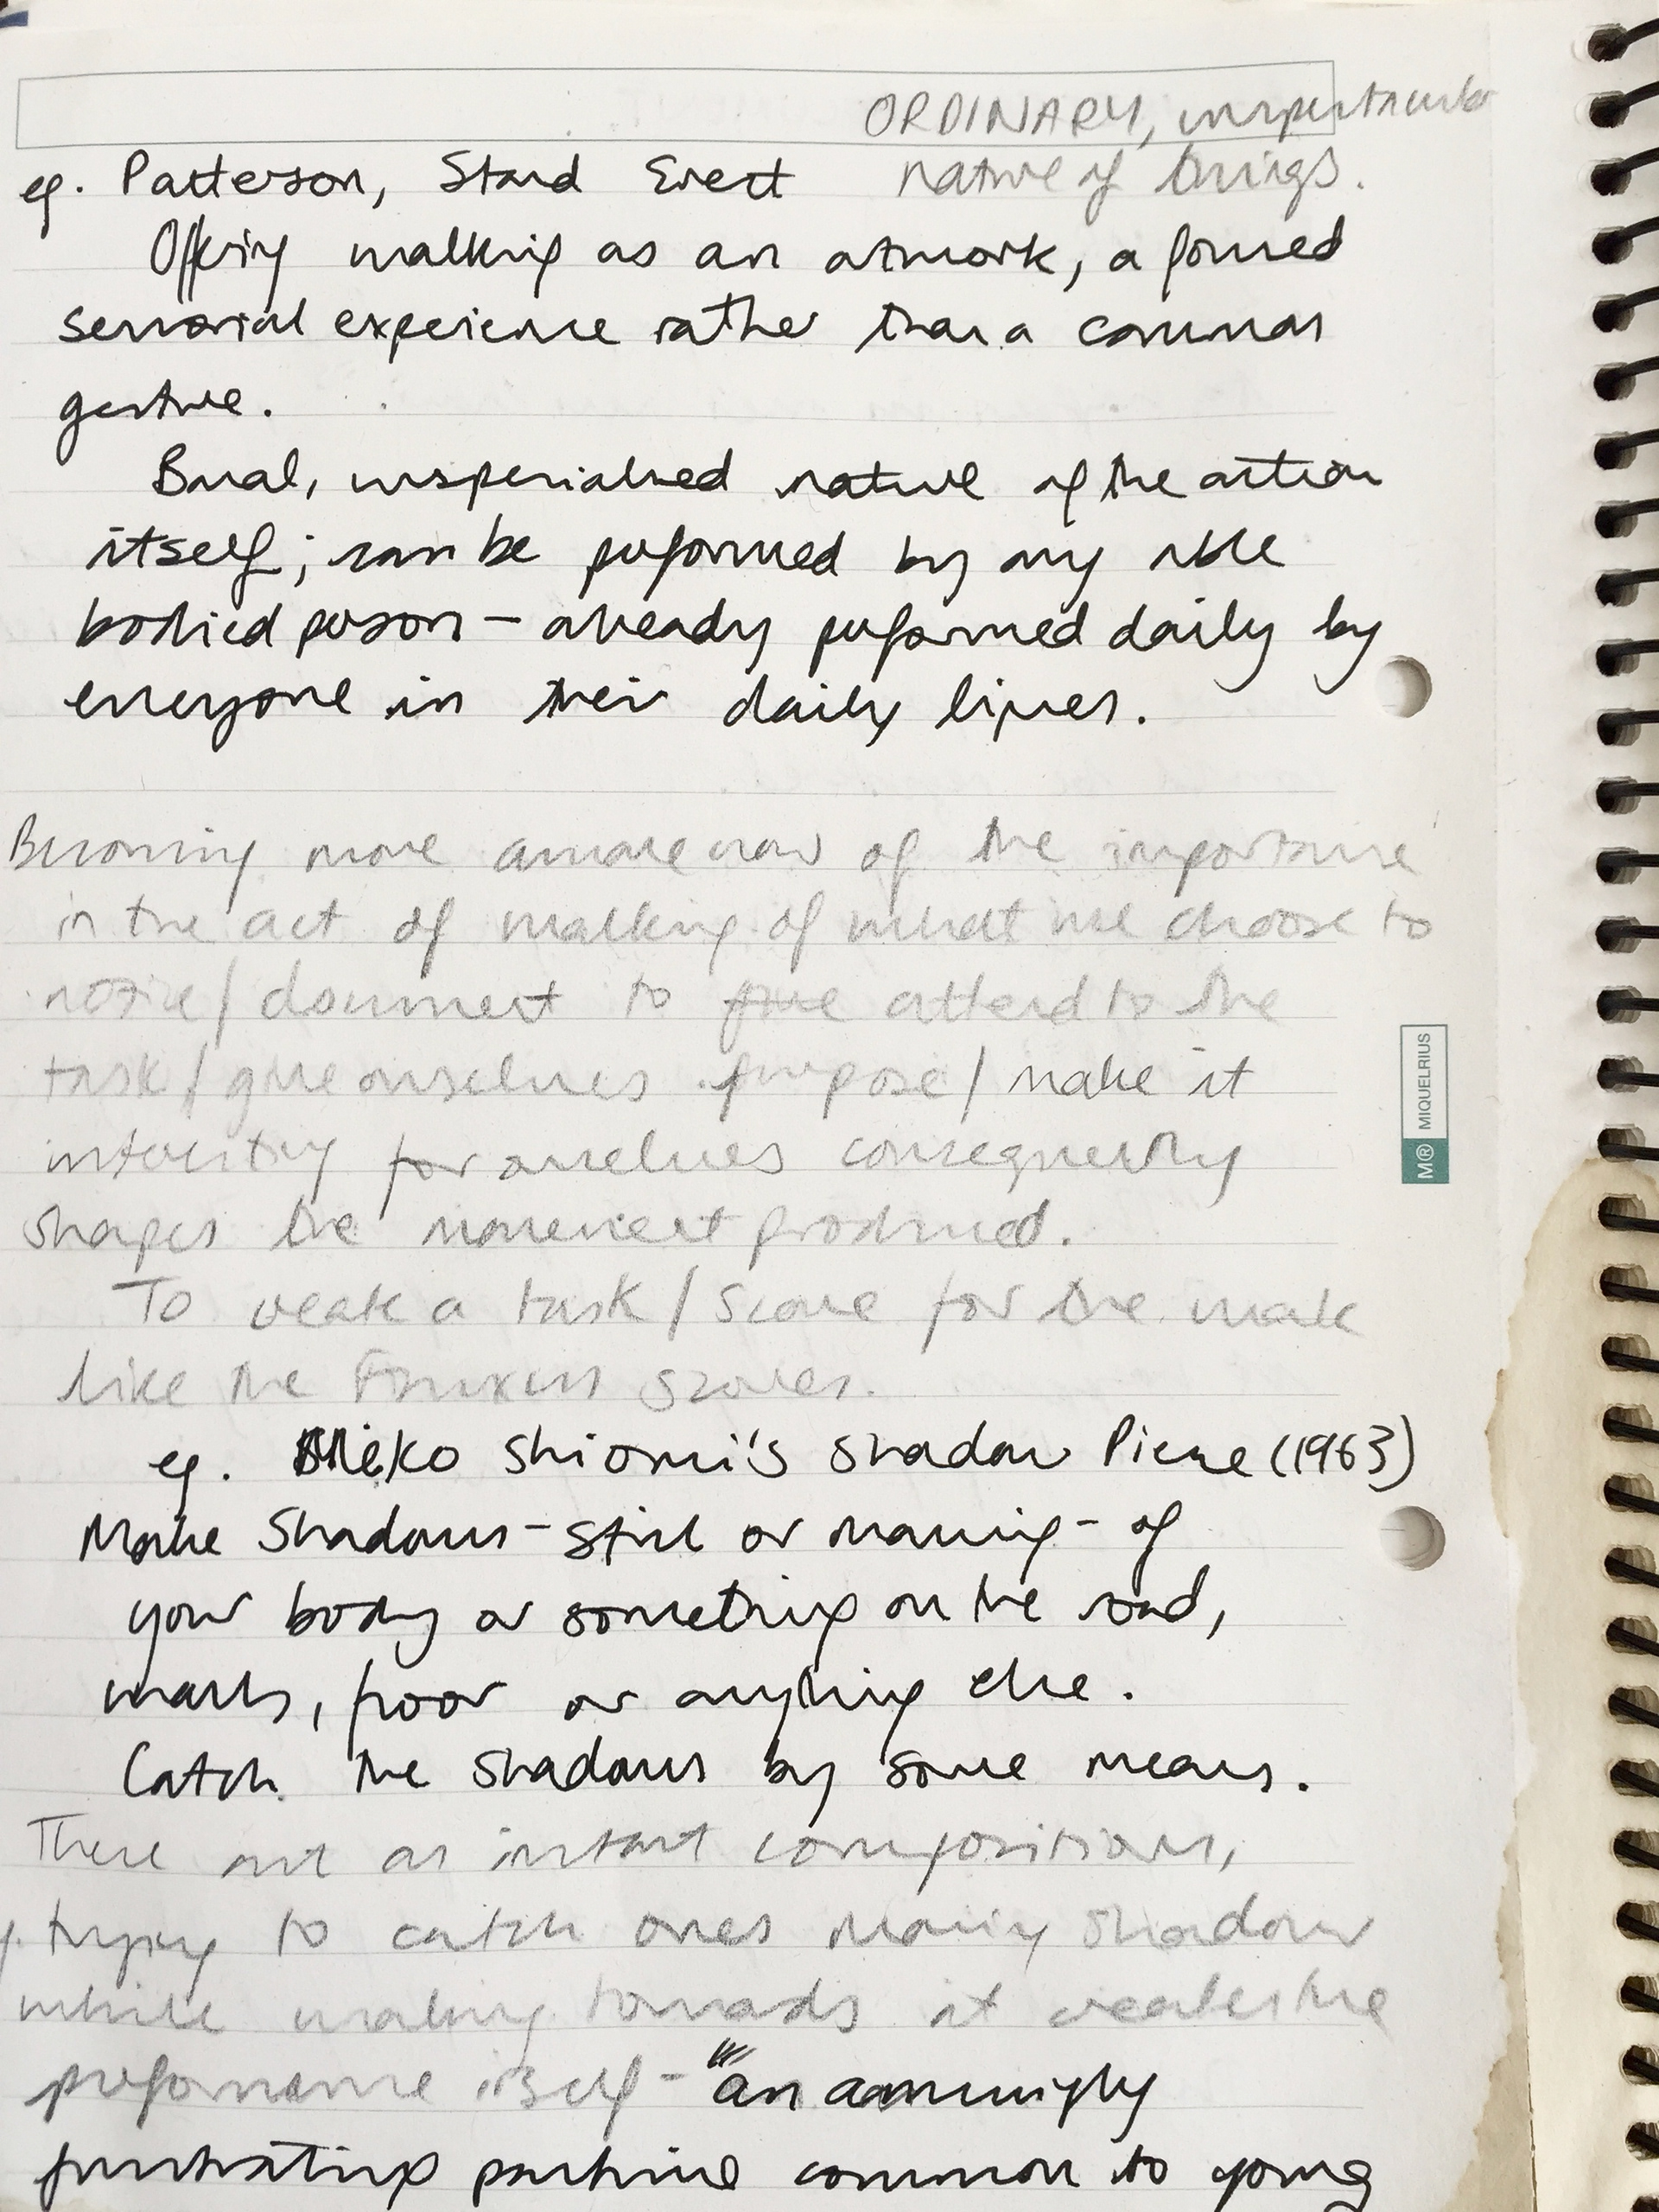 ORDINARY, unspectacular
nature of things.
eg. Patterson, Stand Erect
Offering walking as an artwork, a formed
sensorial experience rather than a common
gesture.
Banal, unspecialised nature of the action
itself; can be performed by any able
bodied person – already performed daily by
everyone in their daily lives.
Becoming more aware now of the importance
in the act of walking of what we choose to
notice / document to give attend to the
task / give ourselves purpose / make it
interesting for ourselves consequently
shapes the movement produced.
To create a task / score for the walk
like the Fluxus scores.
eg. Mieko Shiomi's Shadow Piece (1963)
Make Shadows – still or moving – of
your body or something on the road,
walls, floor or anything else.
Catch the shadows by some means.
These act as instant compositions,
trying to catch ones moving shadow
while walking towards it creates the
performance itself – "an amusingly
frustrating pastime common to young
MR MIQUELRIUS